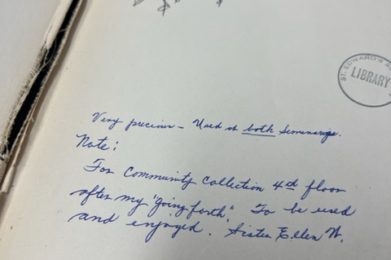 ST. EDWARD'S
LIBRARY
Very precious – Used at both Seminarys.
Note:
For Community Collection 4th floor
after my "going forth". To be used
and enjoyed. Sister Ellen W.